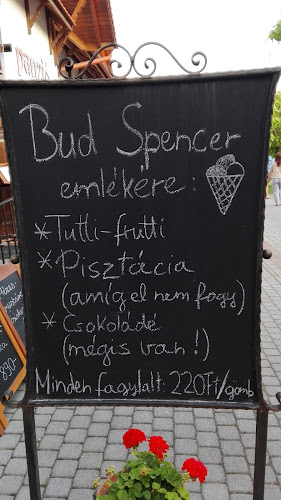 Bud Spencer
emlékére:
* Tutti-frutti
* Pisztácia
(amíg el nem fogy)
* Csokoládé
(mégis van!)
Minden fagylalt: 220Ft/gomb
890.-